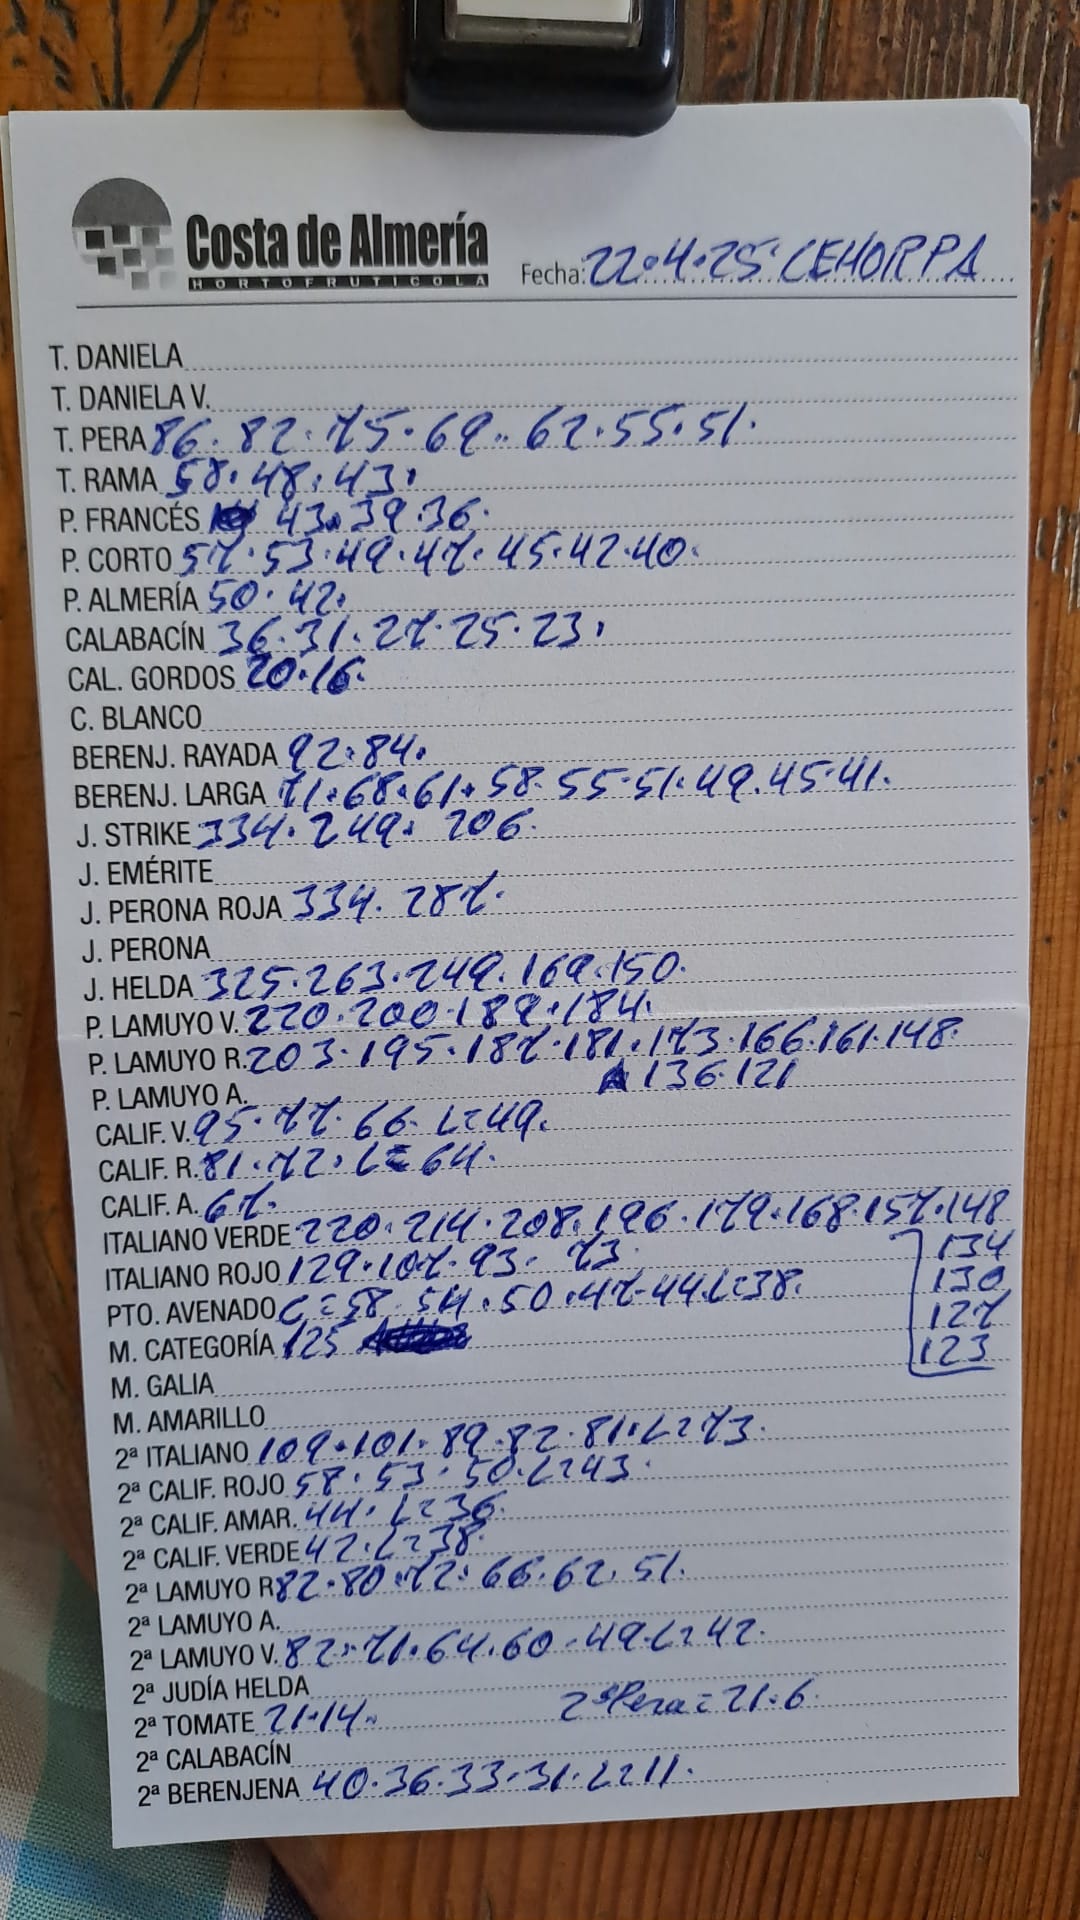 Costa de Almería
HORTOFRUTICOLA
Fecha: 22.4.25 CEHORPA
T. DANIELA
T. DANIELA V.
T. PERA 86. 82. 75. 69.. 62. 55. 51.
T. RAMA 58. 48. 43.
P. FRANCÉS 43. 39. 36.
P. CORTO 57. 53. 49. 47. 45. 42. 40.
P. ALMERÍA 50. 42.
CALABACÍN 36. 31. 27. 25. 23.
CAL. GORDOS 20. 16.
C. BLANCO
BERENJ. RAYADA 92. 84.
BERENJ. LARGA 71. 68. 61. 58. 55. 51. 49. 45. 41.
J. STRIKE 334. 249. 206.
J. EMÉRITE
J. PERONA ROJA 334. 287.
J. PERONA
J. HELDA 325. 263. 249. 169. 150.
P. LAMUYO V. 220. 200. 189. 184.
P. LAMUYO R. 203. 195. 187. 181. 173. 166. 161. 148.
P. LAMUYO A. 136. 121
CALIF. V. 95. 77. 66. L=49.
CALIF. R. 81. 72. L=64.
CALIF. A. 67.
ITALIANO VERDE 220. 214. 208. 196. 179. 168. 157. 148
134
ITALIANO ROJO 129. 107. 93. 73.
130
PTO. AVENADO C=58. 54. 50. 47. 44. L=38.
127
M. CATEGORÍA 125
123
M. GALIA
M. AMARILLO
2ª ITALIANO 109. 101. 89. 82. 81. L=73.
2ª CALIF. ROJO 58. 53. 50. L=43.
2ª CALIF. AMAR. 44. L=36.
2ª CALIF. VERDE 42. L=38.
2ª LAMUYO R 82. 80. 72. 66. 62. 51.
2ª LAMUYO A.
2ª LAMUYO V. 82. 71. 64. 60. 49. L=42.
2ª JUDÍA HELDA
2ª TOMATE 21. 14. 2ª Pera = 21. 6.
2ª CALABACÍN
2ª BERENJENA 40. 36. 33. 31. L=11.